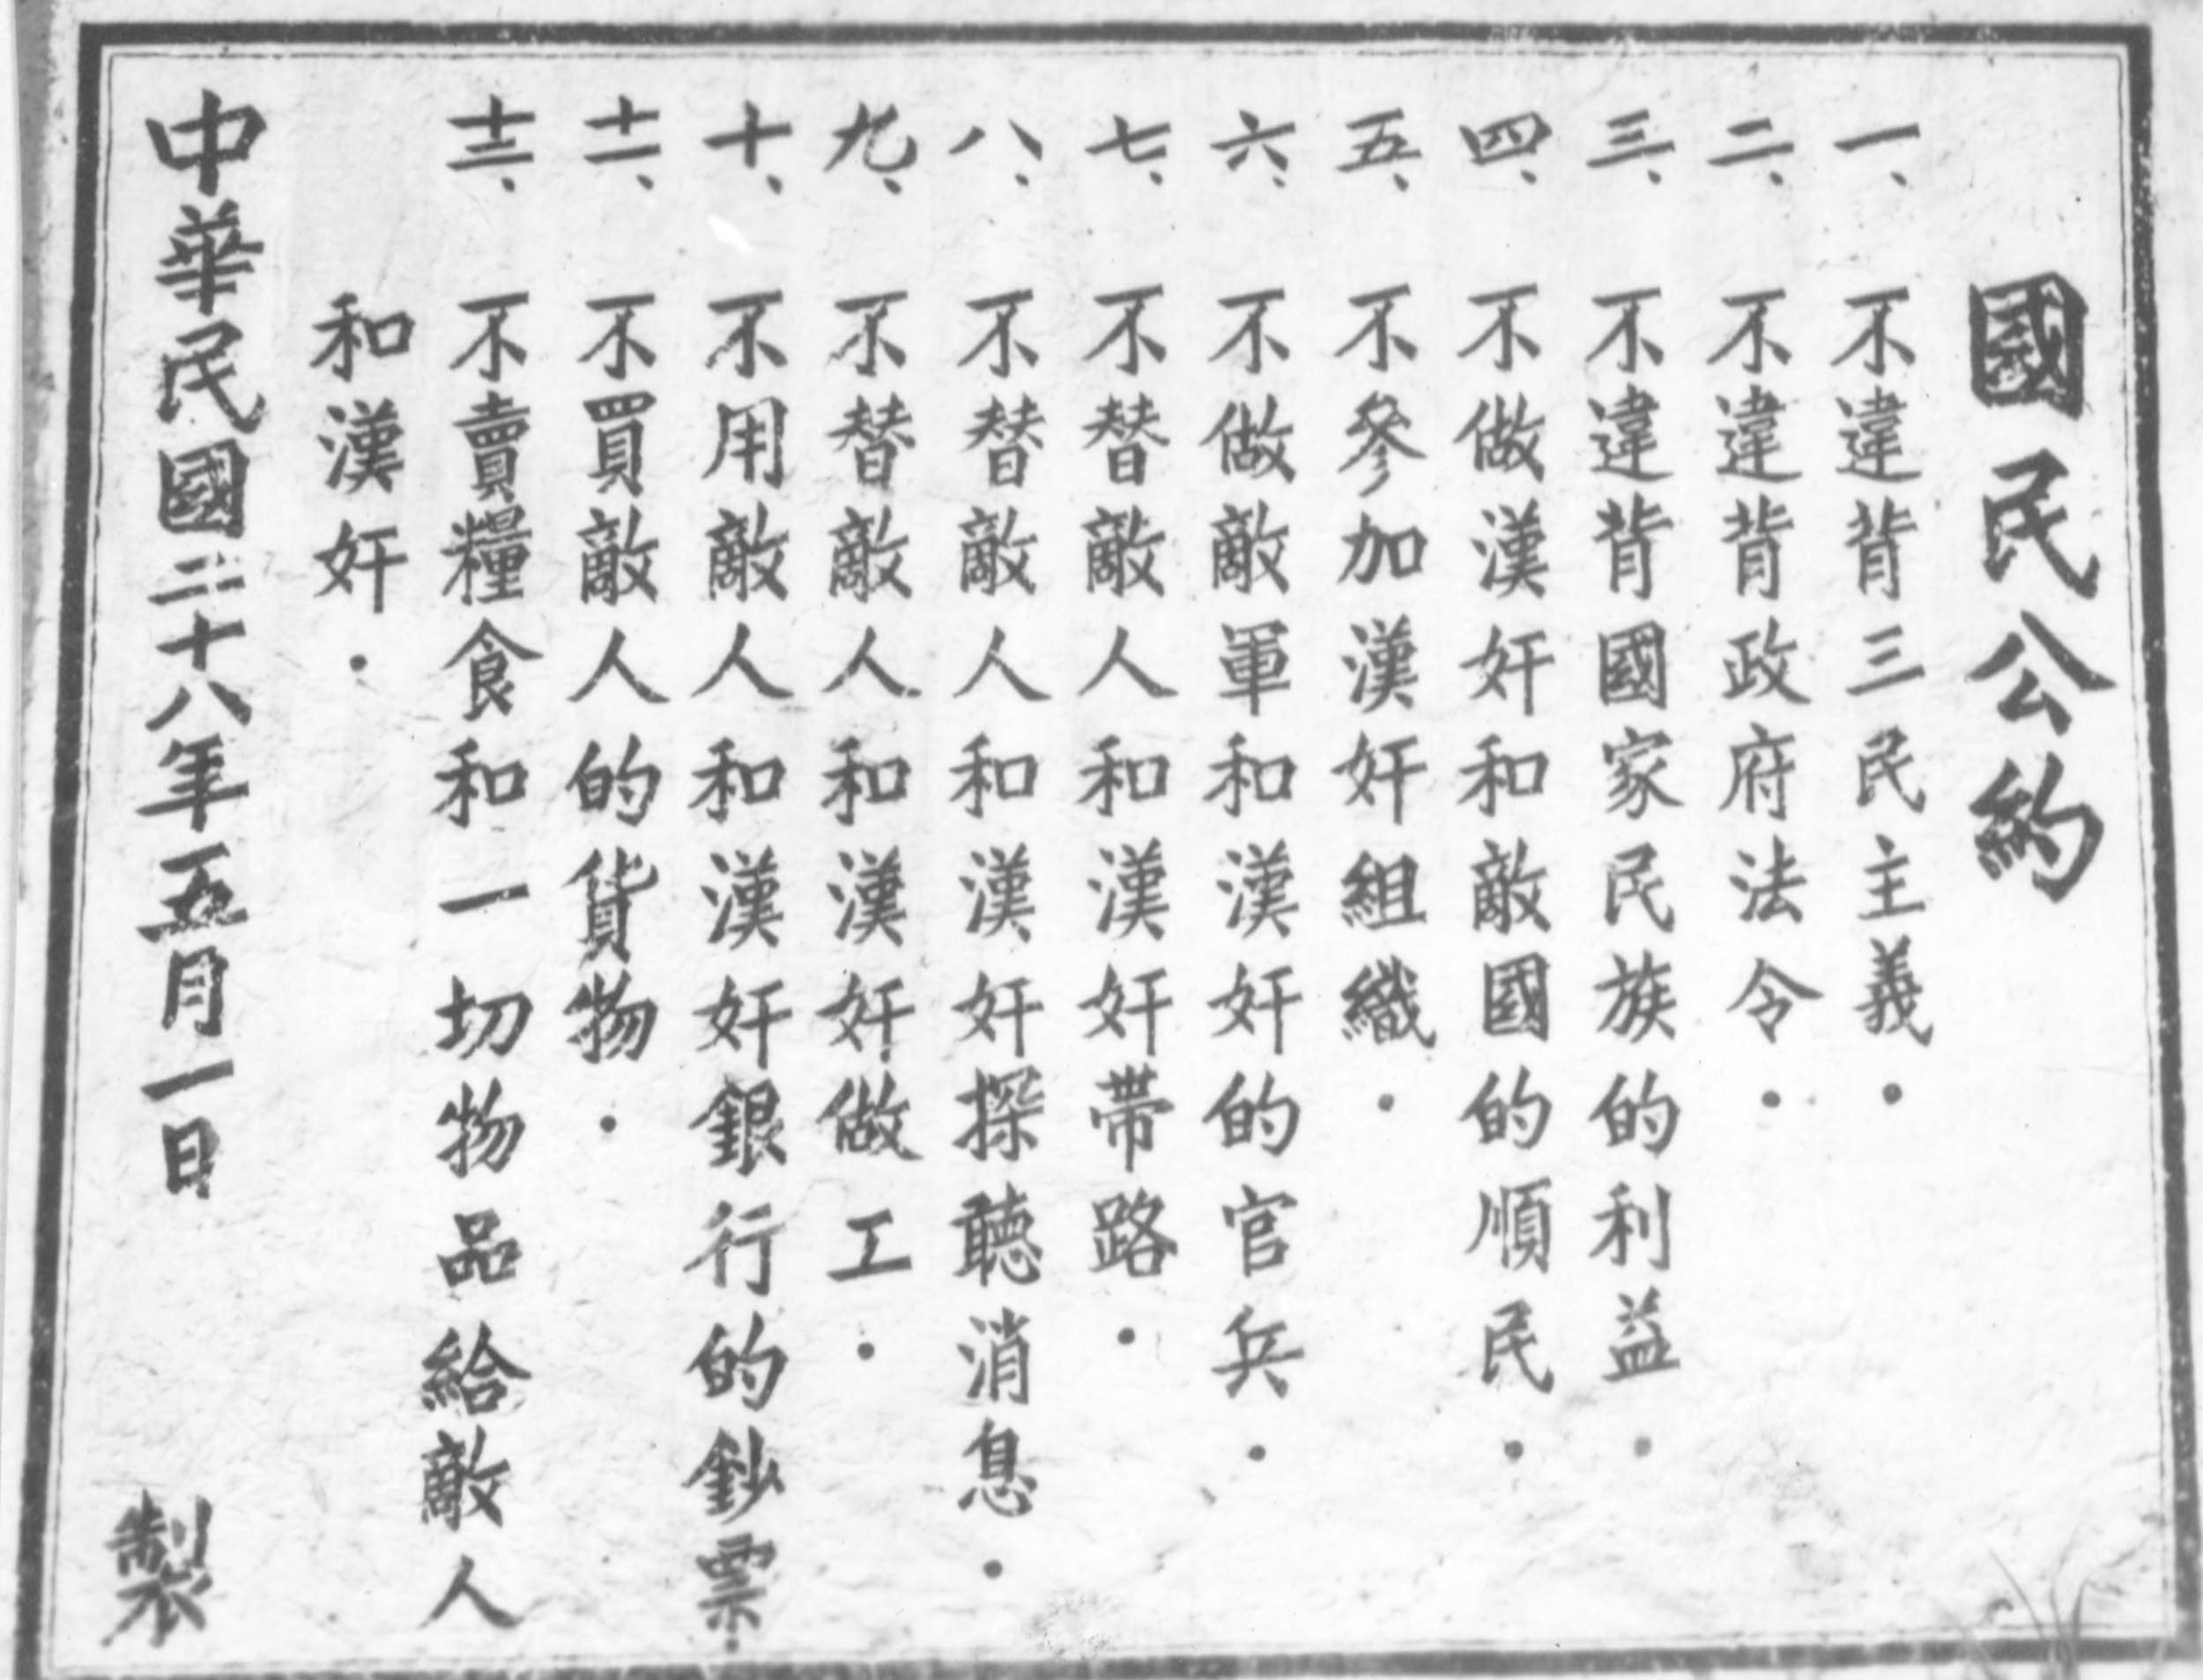 國民公約
一、不違背三民主義．
二、不違背政府法令．
三、不違背國家民族的利益．
四、不做漢奸和敵國的順民．
五、不參加漢奸組織．
六、不做敵軍和漢奸的官兵．
七、不替敵人和漢奸帶路．
八、不替敵人和漢奸探聽消息．
九、不替敵人和漢奸做工．
十、不用敵人和漢奸銀行的鈔票．
十一、不買敵人的貨物．
十二、不賣糧食和一切物品給敵人
和漢奸．
中華民國二十八年五月一日 製